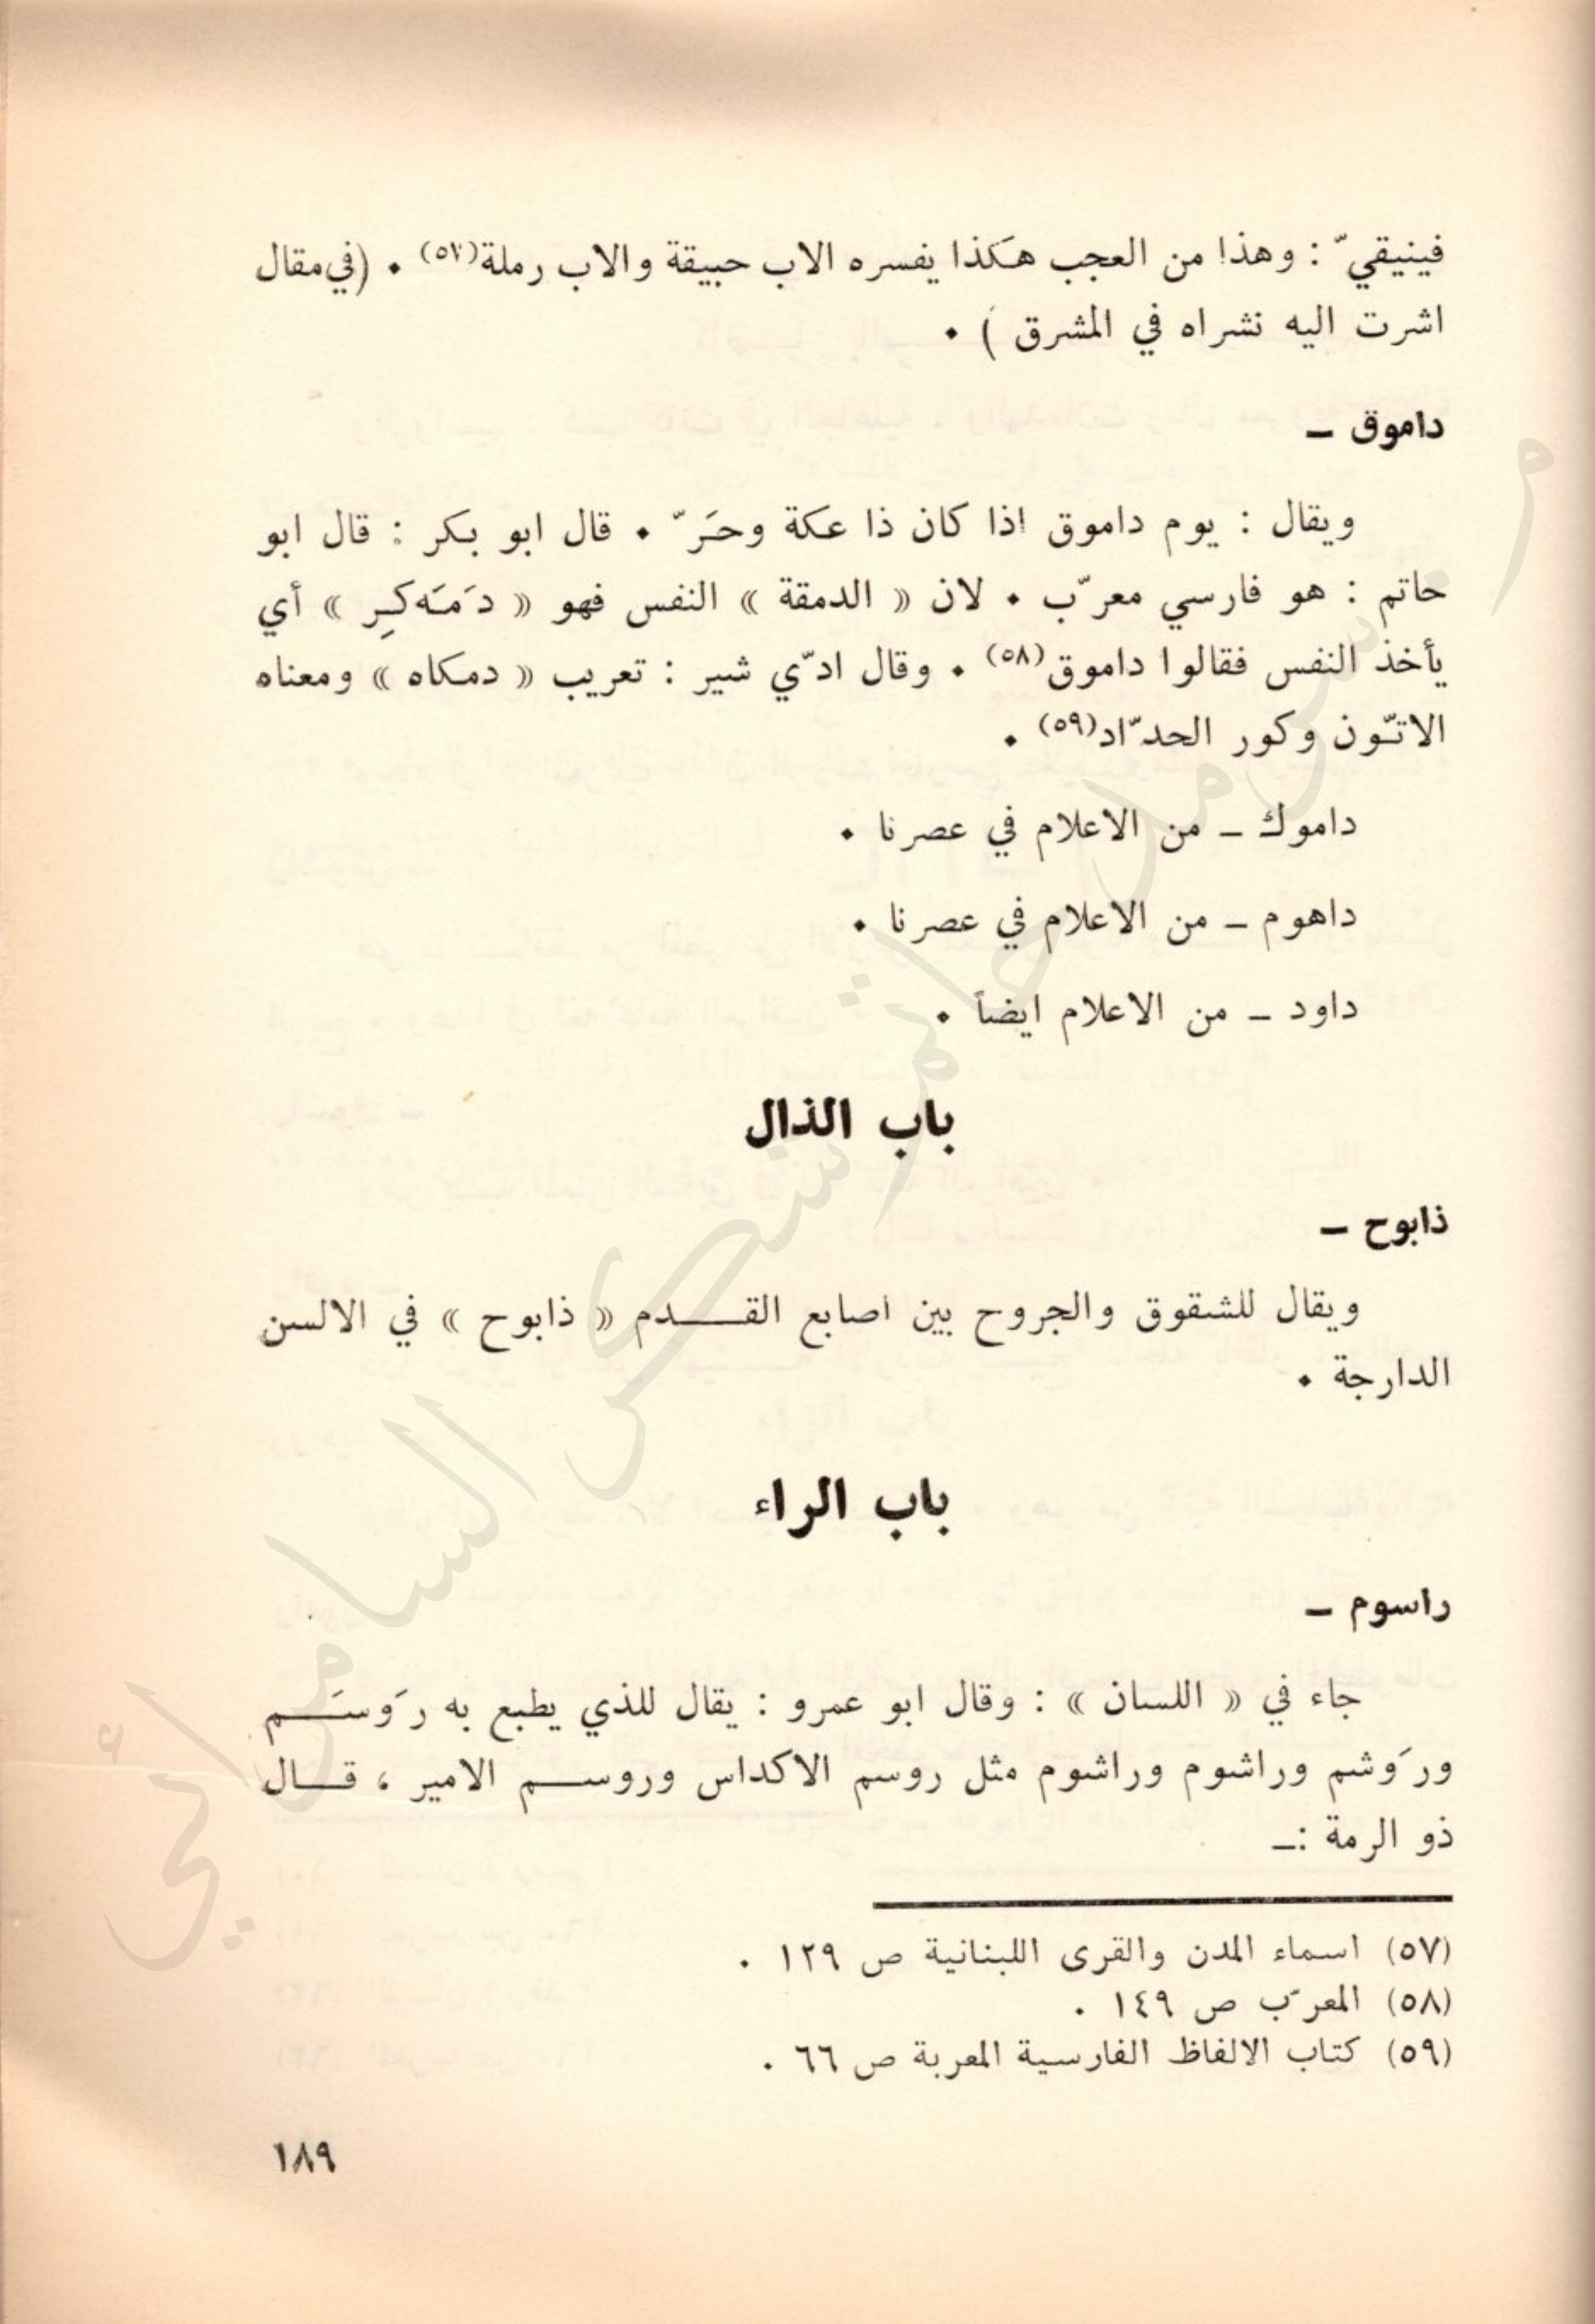 فينيقيّ : وهذا من العجب هكذا يفسره الاب حبيقة والاب رملة(٥٧) ٠ (في مقال
اشرت اليه نشراه في المشرق ) ٠
داموق ـ
ويقال : يوم داموق اذا كان ذا عكة وحَرّ ٠ قال ابو بكر : قال ابو
حاتم : هو فارسي معرّب ٠ لان « الدمقة » النفس فهو « دَمَه كِر » أي
يأخذ النفس فقالوا داموق(٥٨) ٠ وقال ادّي شير : تعريب « دمكاه » ومعناه
الاتّون وكور الحدّاد(٥٩) ٠
داموك ـ من الاعلام في عصرنا ٠
داهوم ـ من الاعلام في عصرنا ٠
داود ـ من الاعلام ايضاً ٠
باب الذال
ذابوح ـ
ويقال للشقوق والجروح بين اصابع القـــدم « ذابوح » في الالسن
الدارجة ٠
باب الراء
راسوم ـ
جاء في « اللسان » : وقال ابو عمرو : يقال للذي يطبع به رَوسَـــم
ورَوشم وراشوم وراشوم مثل روسم الاكداس وروســـم الامير ، قـــال
ذو الرمة :ـ
(٥٧) اسماء المدن والقرى اللبنانية ص ١٢٩ .
(٥٨) المعرّب ص ١٤٩ .
(٥٩) كتاب الالفاظ الفارسية المعربة ص ٦٦ .
١٨٩